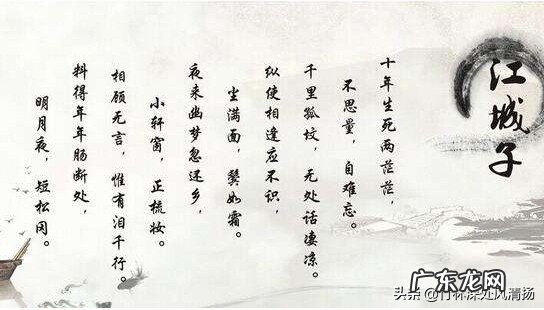 江城子
十年生死两茫茫，
不思量，自难忘。
千里孤坟，无处话凄凉。
纵使相逢应不识，
尘满面，鬓如霜。
夜来幽梦忽还乡，
小轩窗，正梳妆。
相顾无言，惟有泪千行。
料得年年肠断处，
明月夜，短松冈。
广东龙网
头条@竹林深处风清扬